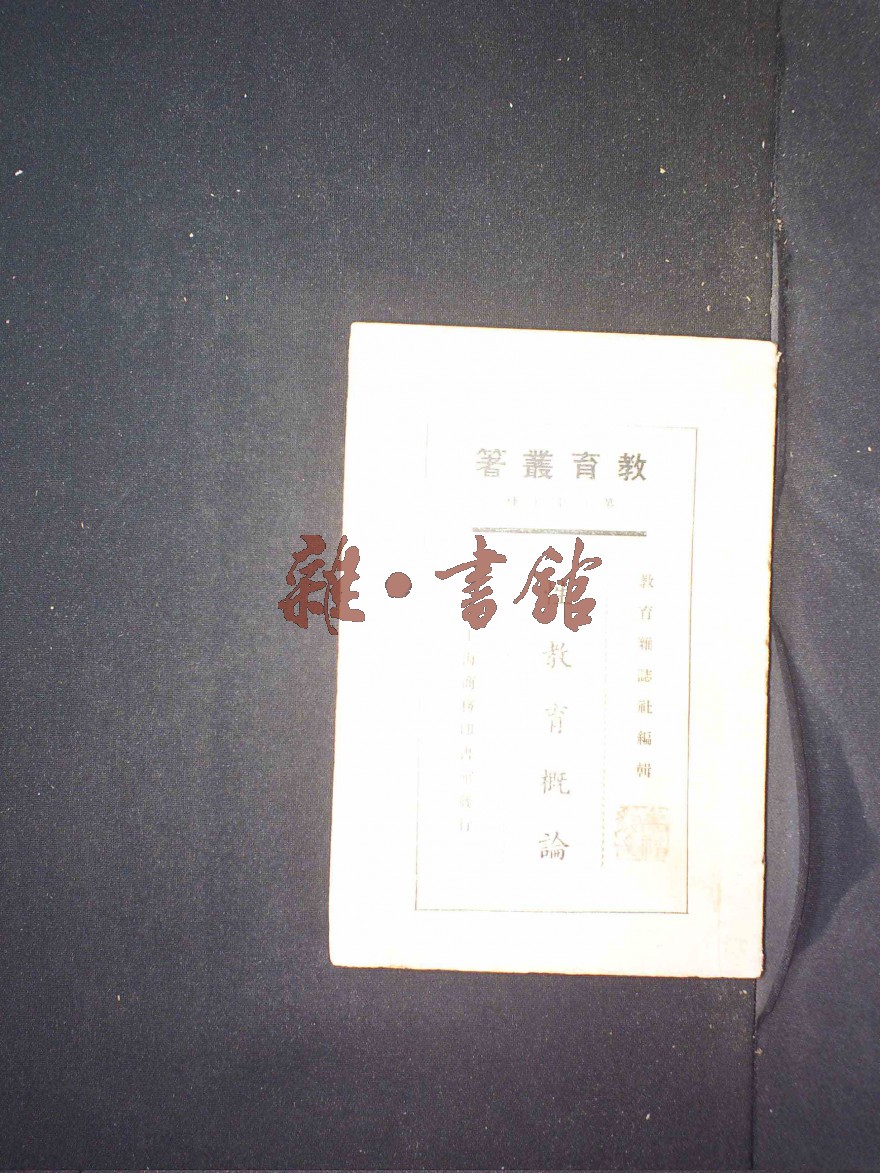 教育叢著
教育雜誌社編輯
教育概論
商務印書館發行
雜·書館